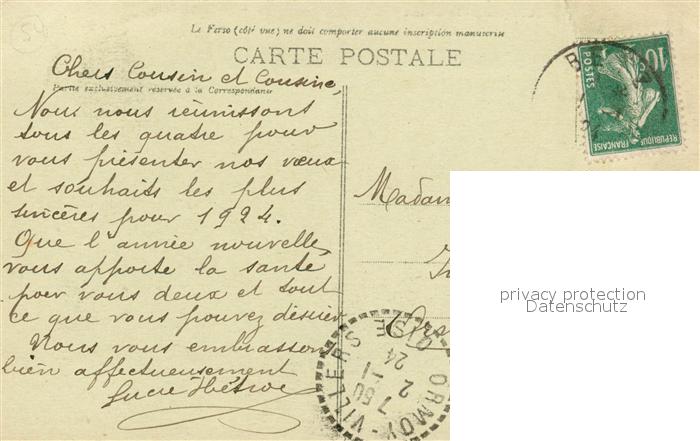 Le Verso (côté vue) ne doit comporter aucune inscription manuscrite
CARTE POSTALE
Chers Cousin et Cousine,
Partie exclusivement réservée à la Correspondance
Nous nous réunissons
tous les quatre pour
vous présenter nos vœux
et souhaits les plus
sincères pour 1924.
Que l'année nouvelle
vous apporte la santé
pour vous deux et tout
ce que vous pouvez désirer
Nous vous embrassons
bien affectueusement
Lucie
Madam
privacy protection
Datenschutz
10c
POSTES
REPUBLIQUE FRANÇAISE
ORMOY-VILLERS OISE
7 50
2 - 1
24